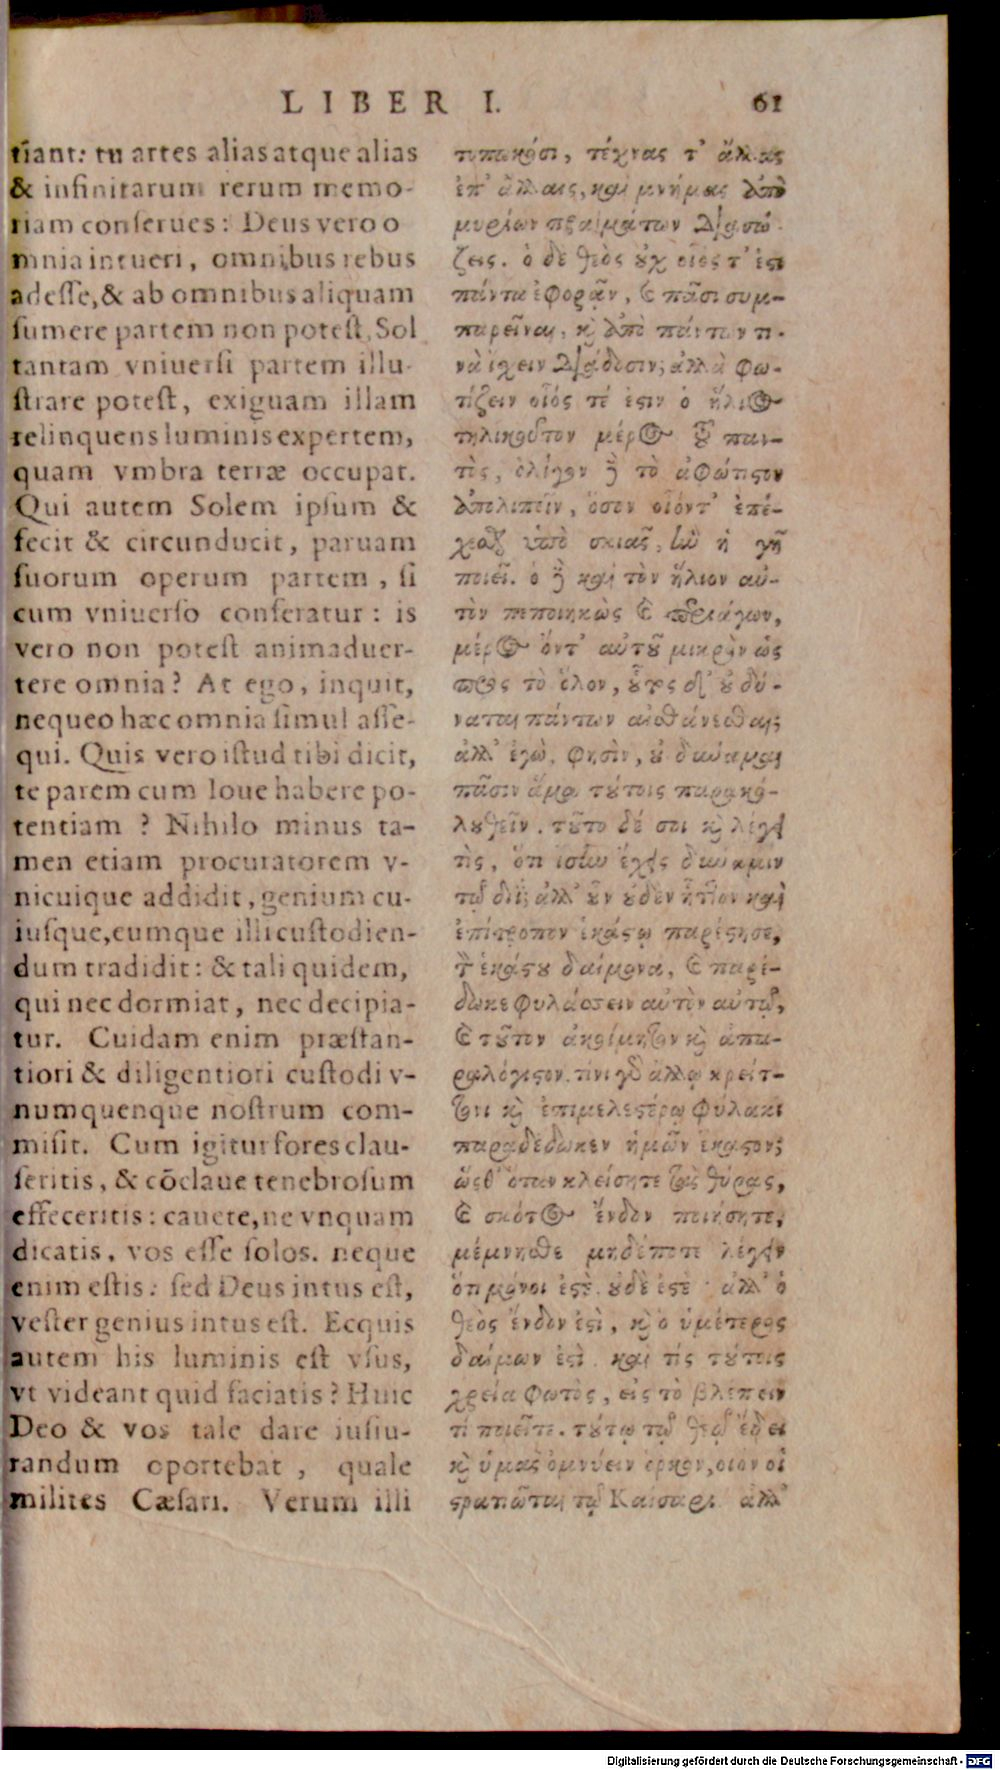 LIBER I. 61
tiant: tu artes alias atque alias
& infinitarum rerum memo-
riam conserues: Deus vero o
mnia intueri, omnibus rebus
adesse, & ab omnibus aliquam
sumere partem non potest, Sol
tantam vniuersi partem illu-
strare potest, exiguam illam
relinquens luminis expertem,
quam vmbra terræ occupat.
Qui autem Solem ipsum &
fecit & circunducit, paruam
suorum operum partem, si
cum vniuerso conferatur: is
vero non potest animaduer-
tere omnia? At ego, inquit,
nequeo hæc omnia simul asse-
qui. Quis vero istud tibi dicit,
te parem cum Ioue habere po-
tentiam? Nihilo minus ta-
men etiam procuratorem v-
nicuique addidit, genium cu-
iusque, eumque illi custodien-
dum tradidit: & tali quidem,
qui nec dormiat, nec decipia-
tur. Cuidam enim præstan-
tiori & diligentiori custodi v-
numquenque nostrum com-
misit. Cum igitur fores clau-
seritis, & cōclaue tenebrosum
effeceritis: cauete, ne vnquam
dicatis, vos esse solos. neque
enim estis: sed Deus intus est,
vester genius intus est. Ecquis
autem his luminis est vsus,
vt videant quid faciatis? Huic
Deo & vos tale dare iusiu-
randum oportebat, quale
milites Cæsari. Verum illi
τέχνας τ' ἄλλας
ἐπ' ἄλλαις, καὶ μνήμας ἀπὸ
μυρίων πραγμάτων διασώ-
ζεις. ὁ δὲ θεὸς οὐχ οἷός τ' ἐστι
πάντα ἐφορᾷν, & πᾶσι συμ-
παρεῖναι, καὶ ἀπὸ πάντων τι-
νὰ ἴσχειν διάδοσιν; ἀλλὰ φω-
τίζειν οἷός τέ ἐστιν ὁ ἥλιος
τηλικοῦτον μέρος τοῦ παν-
τὸς, ὀλίγον δὲ τὸ ἀφώτιστον
ἀπολιπεῖν, ὅσον οἷόντ' ἐπέ-
χεσθαι ὑπὸ σκιᾶς, ἣν ἡ γῆ
ποιεῖ. ὁ δὲ καὶ τὸν ἥλιον αὐ-
τὸν πεποιηκὼς & περιάγων,
μέρος ὄντ' αὐτοῦ μικρὸν ὡς
πρὸς τὸ ὅλον, οὗτος δ' οὐ δύ-
ναται πάντων αἰσθάνεσθαι;
ἀλλ' ἐγὼ, φησὶν, οὐ δύναμαι
πᾶσιν ἅμα τούτοις παρακο-
λουθεῖν. τοῦτο δέ σοι καὶ λέγει
τὶς, ὅτι ἴσην ἔχεις δύναμιν
τῷ διΐ; ἀλλ' οὖν οὐδὲν ἧττον καὶ
ἐπίτροπον ἑκάστῳ παρέστησε,
τὸν ἑκάστου δαίμονα, & παρέ-
δωκε φυλάσσειν αὐτὸν αὐτῷ,
& τοῦτον ἀκοίμητον καὶ ἀπα-
ραλόγιστον. τίνι γὰρ ἄλλῳ κρείτ-
τονι καὶ ἐπιμελεστέρῳ φύλακι
παραδέδωκεν ἡμῶν ἕκαστον;
ὥσθ' ὅταν κλείσητε τὰς θύρας,
& σκότος ἔνδον ποιήσητε,
μέμνησθε μηδέποτε λέγειν
ὅτι μόνοι ἐστὲ. οὐδὲ ἐστὲ· ἀλλ' ὁ
θεὸς ἔνδον ἐστὶ, καὶ ὁ ὑμέτερος
δαίμων ἐστὶ. καὶ τίς τούτοις
χρεία φωτὸς, εἰς τὸ βλέπειν
τί ποιεῖτε. τούτῳ τῷ θεῷ ἔδει
καὶ ὑμᾶς ὀμνύειν ὅρκον, οἷον οἱ
στρατιῶται τῷ Καίσαρι. ἀλλ'
Digitalisierung gefördert durch die Deutsche Forschungsgemeinschaft - DFG